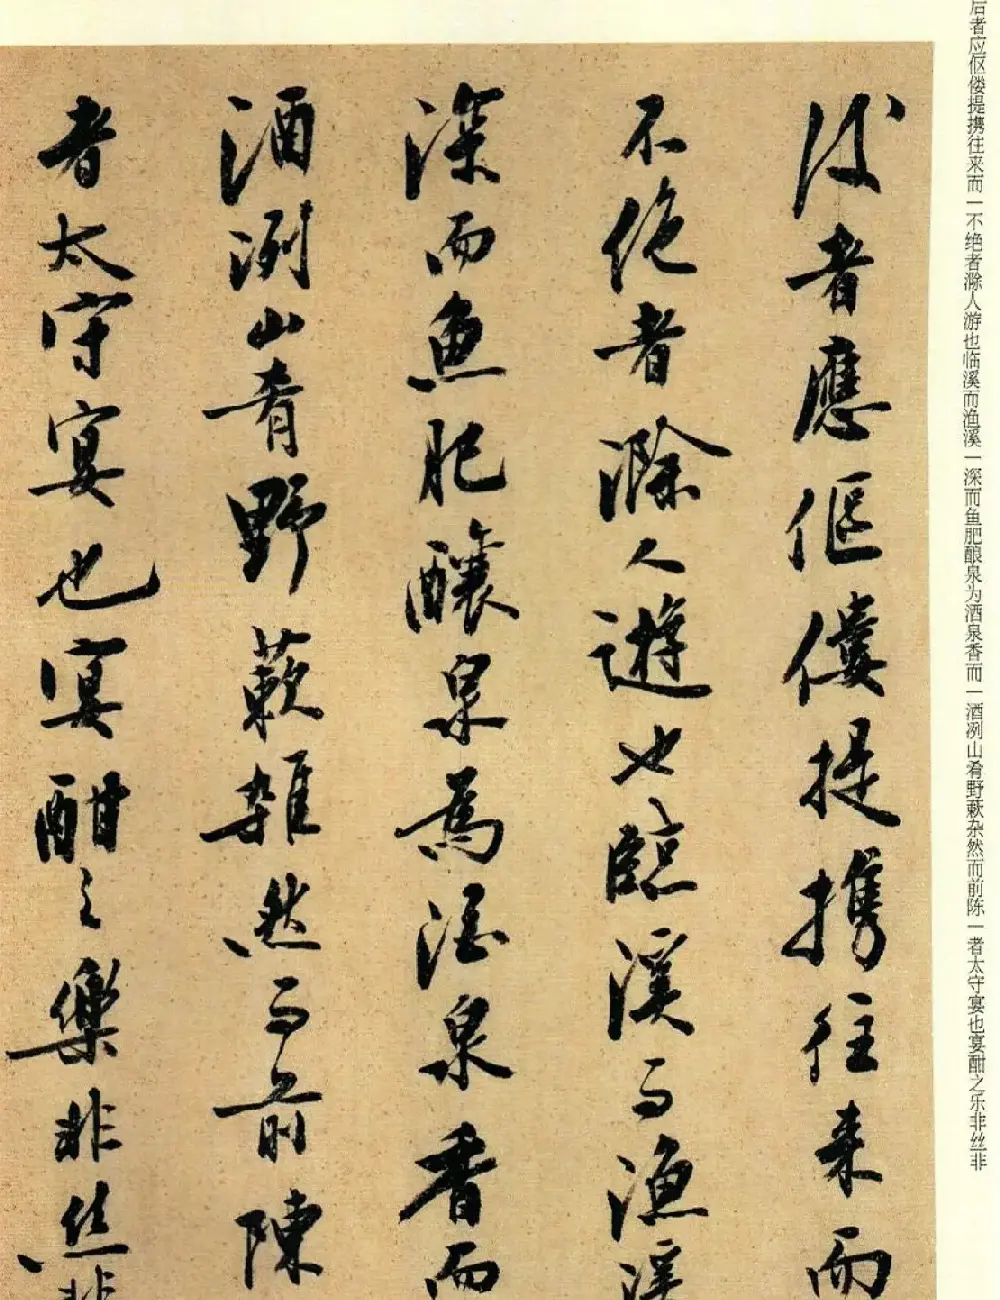 后者应伛偻提携往来而一不绝者滁人游也临溪而渔溪一深而鱼肥酿泉为酒泉香而一酒冽山肴野蔌杂然而前陈一者太守宴也宴酣之乐非丝非
後者應傴僂提携往来而
不絶者滁人遊也臨溪而漁溪
深而魚肥釀泉為酒泉香而
酒洌山肴野蔌雜然而前陳
者太守宴也宴酣之樂非絲非